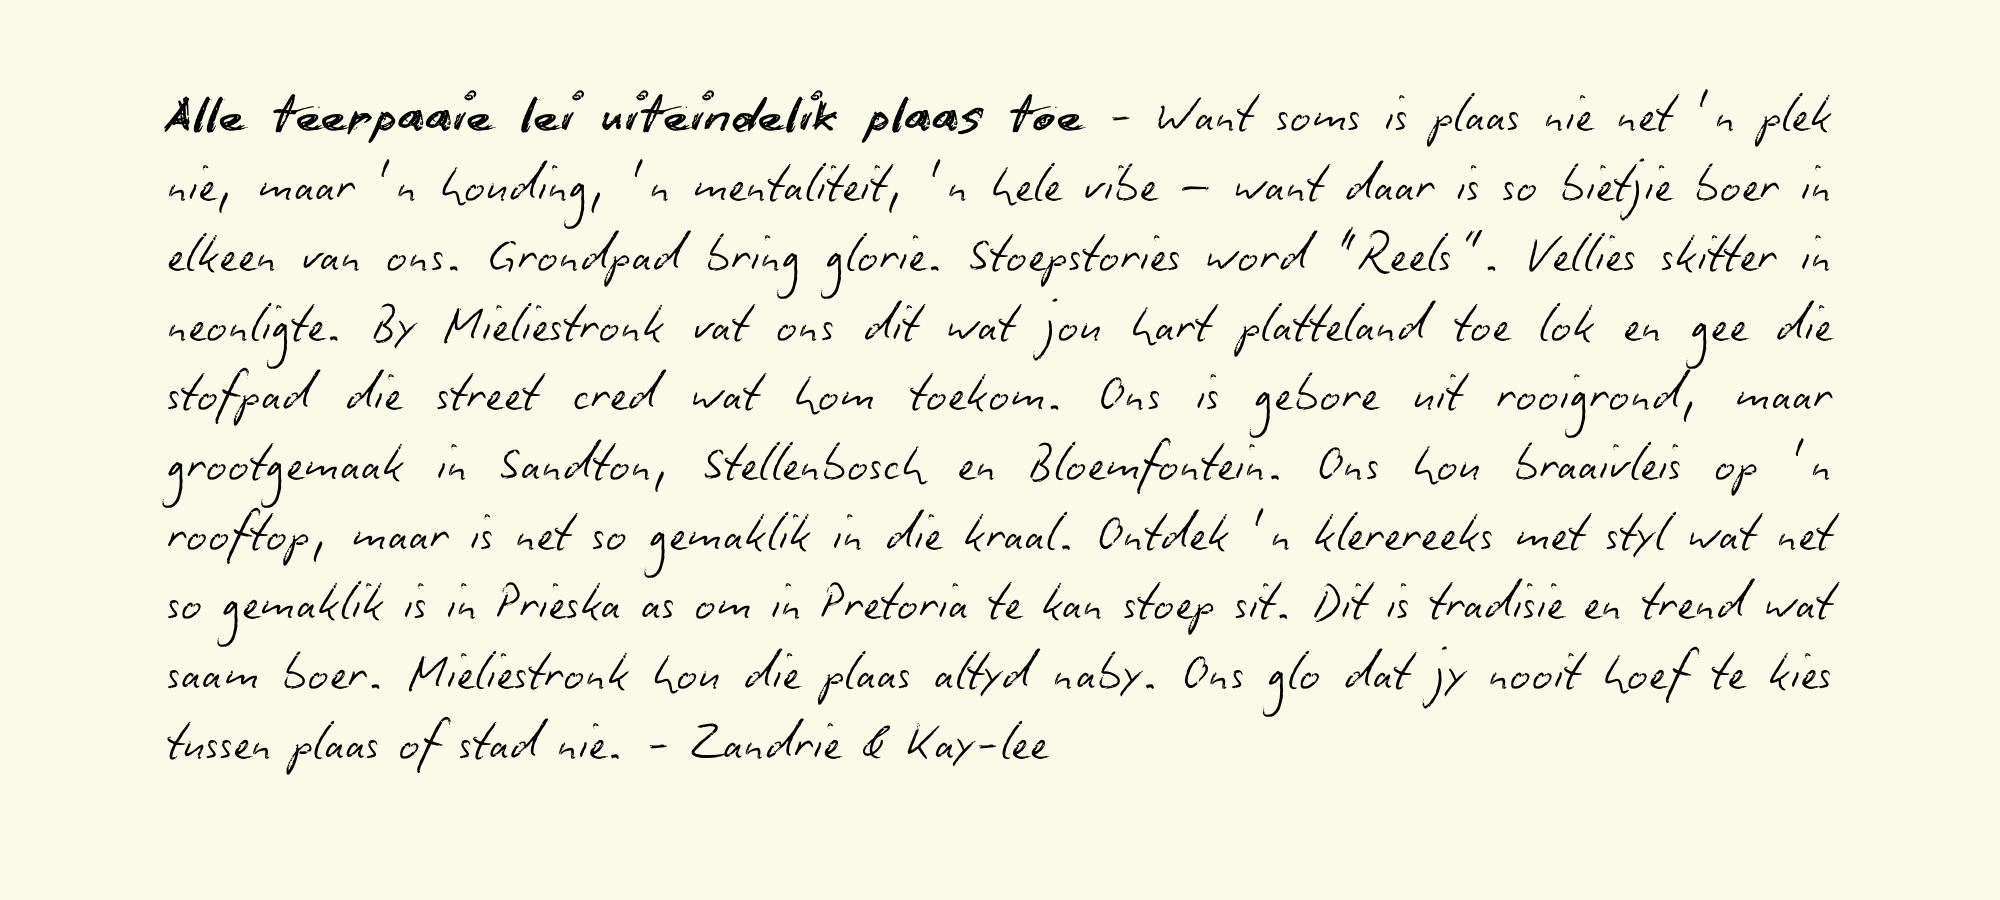 Alle teerpaaie lei uiteindelik plaas toe - Want soms is plaas nie net 'n plek
nie, maar 'n houding, 'n mentaliteit, 'n hele vibe – want daar is so bietjie boer in
elkeen van ons. Grondpad bring glorie. Stoepstories word "Reels". Vellies skitter in
neonligte. By Mieliestronk vat ons dit wat jou hart platteland toe lok en gee die
stofpad die street cred wat hom toekom. Ons is gebore uit rooigrond, maar
grootgemaak in Sandton, Stellenbosch en Bloemfontein. Ons hou braaivleis op 'n
rooftop, maar is net so gemaklik in die kraal. Ontdek 'n klerereeks met styl wat net
so gemaklik is in Prieska as om in Pretoria te kan stoep sit. Dit is tradisie en trend wat
saam boer. Mieliestronk hou die plaas altyd naby. Ons glo dat jy nooit hoef te kies
tussen plaas of stad nie. - Zandrie & Kay-lee